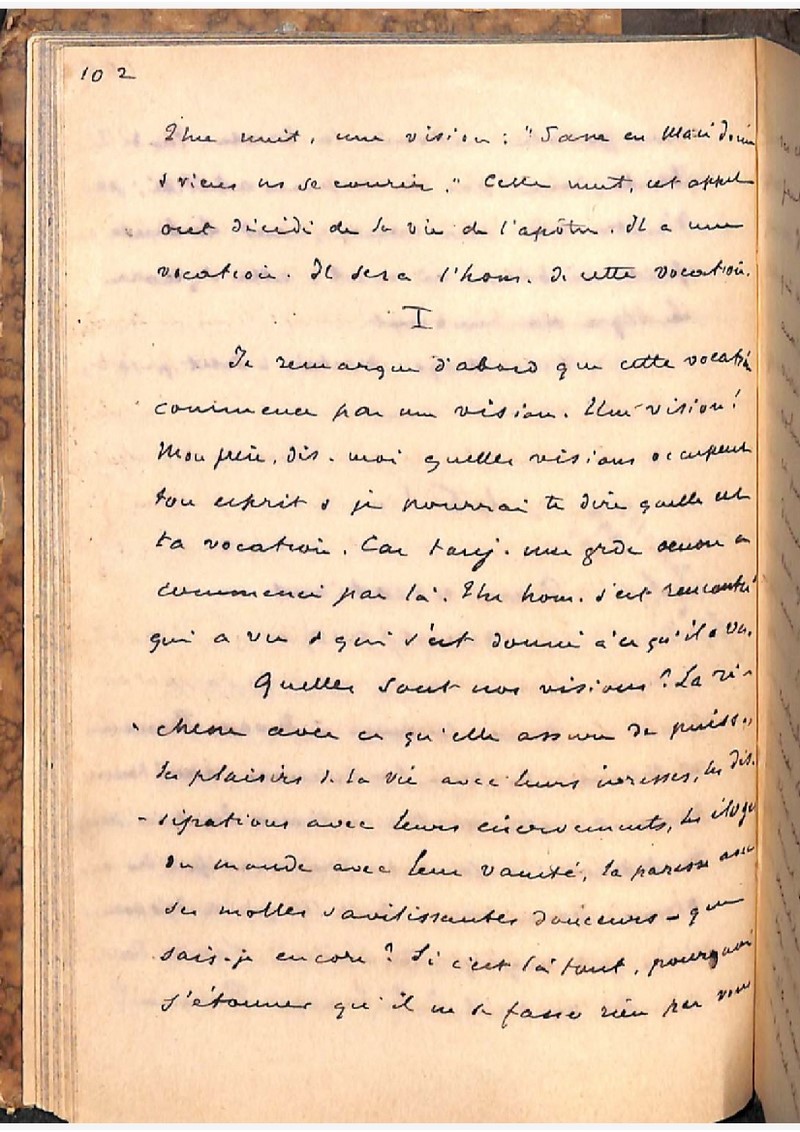 102
Une nuit, une vision : "Passe en Macédoine
& viens ns secourir." Cette nuit, cet appel
ont décidé de la vie de l'apôtre. Il a une
vocation. Il sera l'hom. de cette vocation.
I
Je remarque d'abord que cette vocation
commence par une vision. Une vision!
Mon frère, dis-moi quelles visions occupent
ton esprit & je pourrai te dire quelle est
ta vocation. Car touj. une grde oeuvre a
commencé par là. Un hom. s'est rencontré
qui a vu & qui s'est donné à ce qu'il a vu.
Quelles sont nos visions? La ri-
chesse avec ce qu'elle assure de puiss.,
les plaisirs d. la vie avec leurs ivresses, les dis-
-sipations avec leurs énervements, les éloges
du monde avec leur vanité, la paresse avec
ses molles & avilissantes douceurs - que
sais-je encore? Si c'est là tout, pourquoi
s'étonner qu'il ne se fasse rien par vous